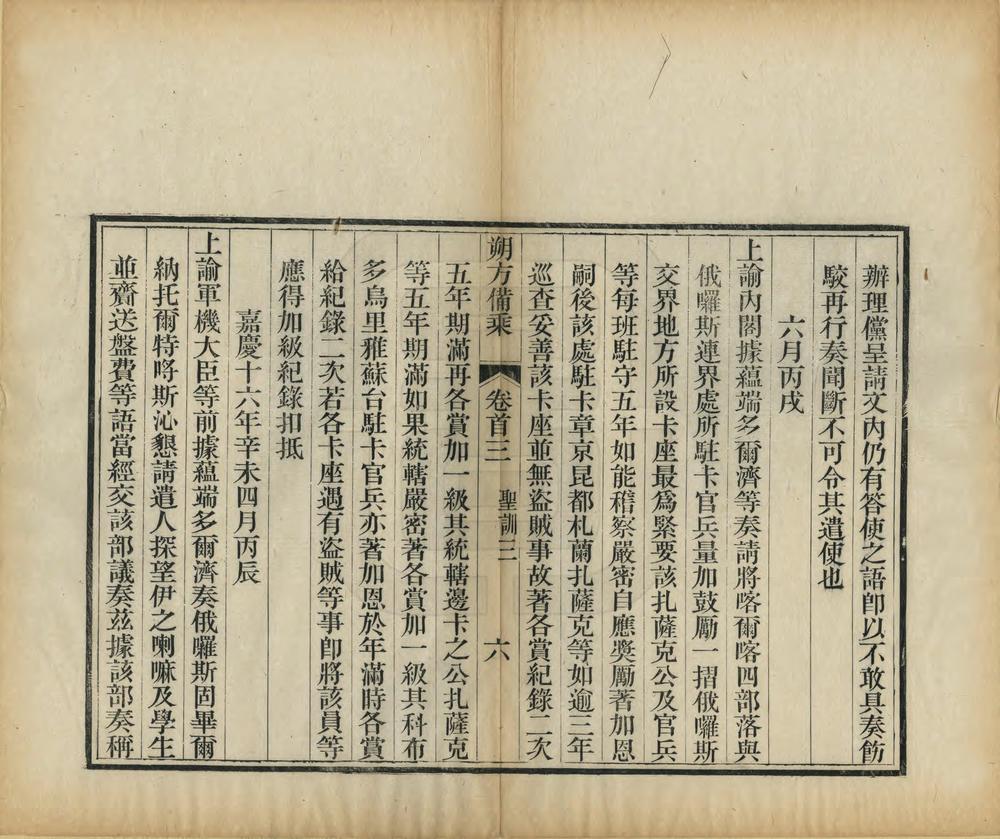 辦理儻呈請文內仍有答使之語卽以不敢具奏飭
駮再行奏聞斷不可令其遣使也
六月丙戌
上諭內閣據蘊端多爾濟等奏請將喀爾喀四部落與
俄囉斯連界處所駐卡官兵量加鼓勵一摺俄囉斯
交界地方所設卡座最爲緊要該扎薩克公及官兵
等每班駐守五年如能稽察嚴密自應獎勵著加恩
嗣後該處駐卡章京昆都札蘭扎薩克等如逾三年
巡查妥善該卡座並無盜賊事故著各賞紀錄二次
朔方備乘 卷首三 聖訓三 六
五年期滿再各賞加一級其統轄邊卡之公扎薩克
等五年期滿如果統轄嚴密著各賞加一級其科布
多烏里雅蘇台駐卡官兵亦著加恩於年滿時各賞
給紀錄二次若各卡座遇有盜賊等事卽將該員等
應得加級紀錄扣抵
嘉慶十六年辛未四月丙辰
上諭軍機大臣等前據蘊端多爾濟奏俄囉斯固畢爾
納托爾特哷斯沁懇請遣人探望伊之喇嘛及學生
並齎送盤費等語當經交該部議奏茲據該部奏稱